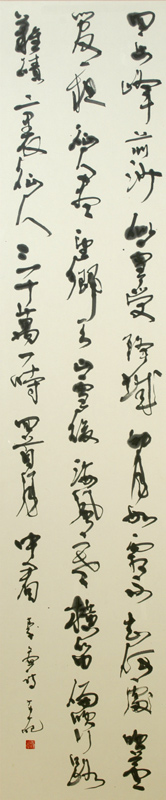 回樂峰前沙似雪受降城外月如霜不知何處吹蘆
管一夜征人盡望鄉天山雪後海風寒橫笛偏吹行路
難磧裏征人三十萬一時回首月中看